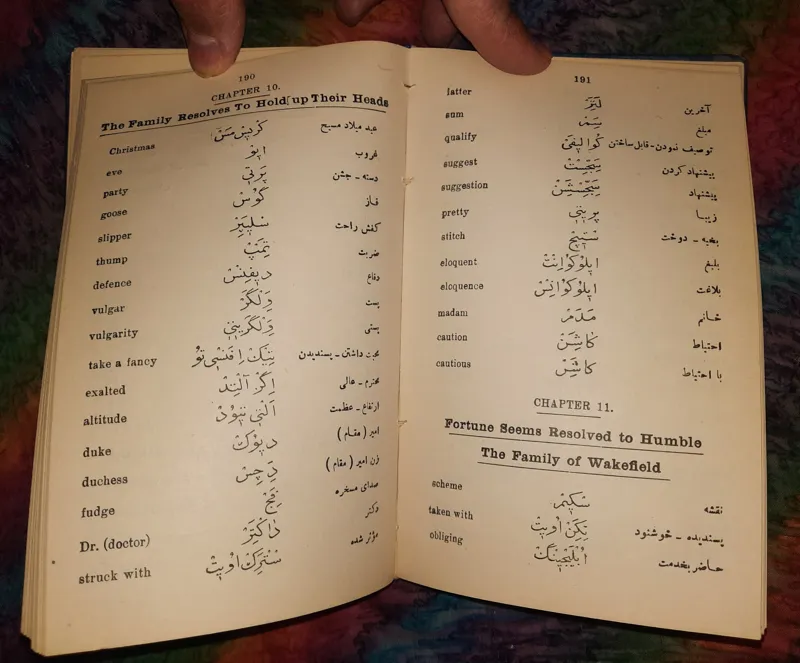 190
CHAPTER 10.
The Family Resolves To Hold up Their Heads
Christmas کریس مس عید میلاد مسیح
eve ایو غروب
party پرتی دسته - جشن
goose گوس غاز
slipper سلیپر کفش راحت
thump ثمپ ضربت
defence دیفنس دفاع
vulgar ولگر پست
vulgarity پستی
take a fancy محبت داشتن - پسندیدن
exalted محترم - عالی
altitude ارتفاع - عظمت
duke دیوک امیر (مقام)
duchess دچس زن امیر (مقام)
fudge فج صدای مسخره
Dr. (doctor) داکتر دکتر
struck with متوثر شده
191
latter لتر آخرین
sum سم مبلغ
qualify کوالیفی توصیف نمودن - قابل ساختن
suggest سجست پیشنهاد کردن
suggestion سجسشن پیشنهاد
pretty پریتی زیبا
stitch ستیچ بخیه - دوخت
eloquent ایلوکوانت بلیغ
eloquence ایلوکوانس بلاغت
madam مدم خانم
caution کاشن احتیاط
cautious کاشس با احتیاط
CHAPTER 11.
Fortune Seems Resolved to Humble
The Family of Wakefield
scheme سکیم نقشه
taken with تیکن اویت پسندیده - خوشنود
obliging ابلیجینگ حاضر بخدمت